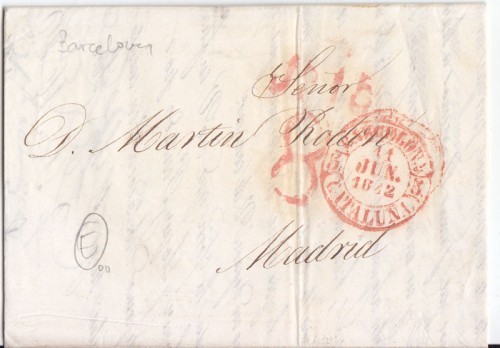 Barcelona
Señor
D. Martin
BARCELONA
11
JUN.
1842
CATALUÑA
Madrid
E